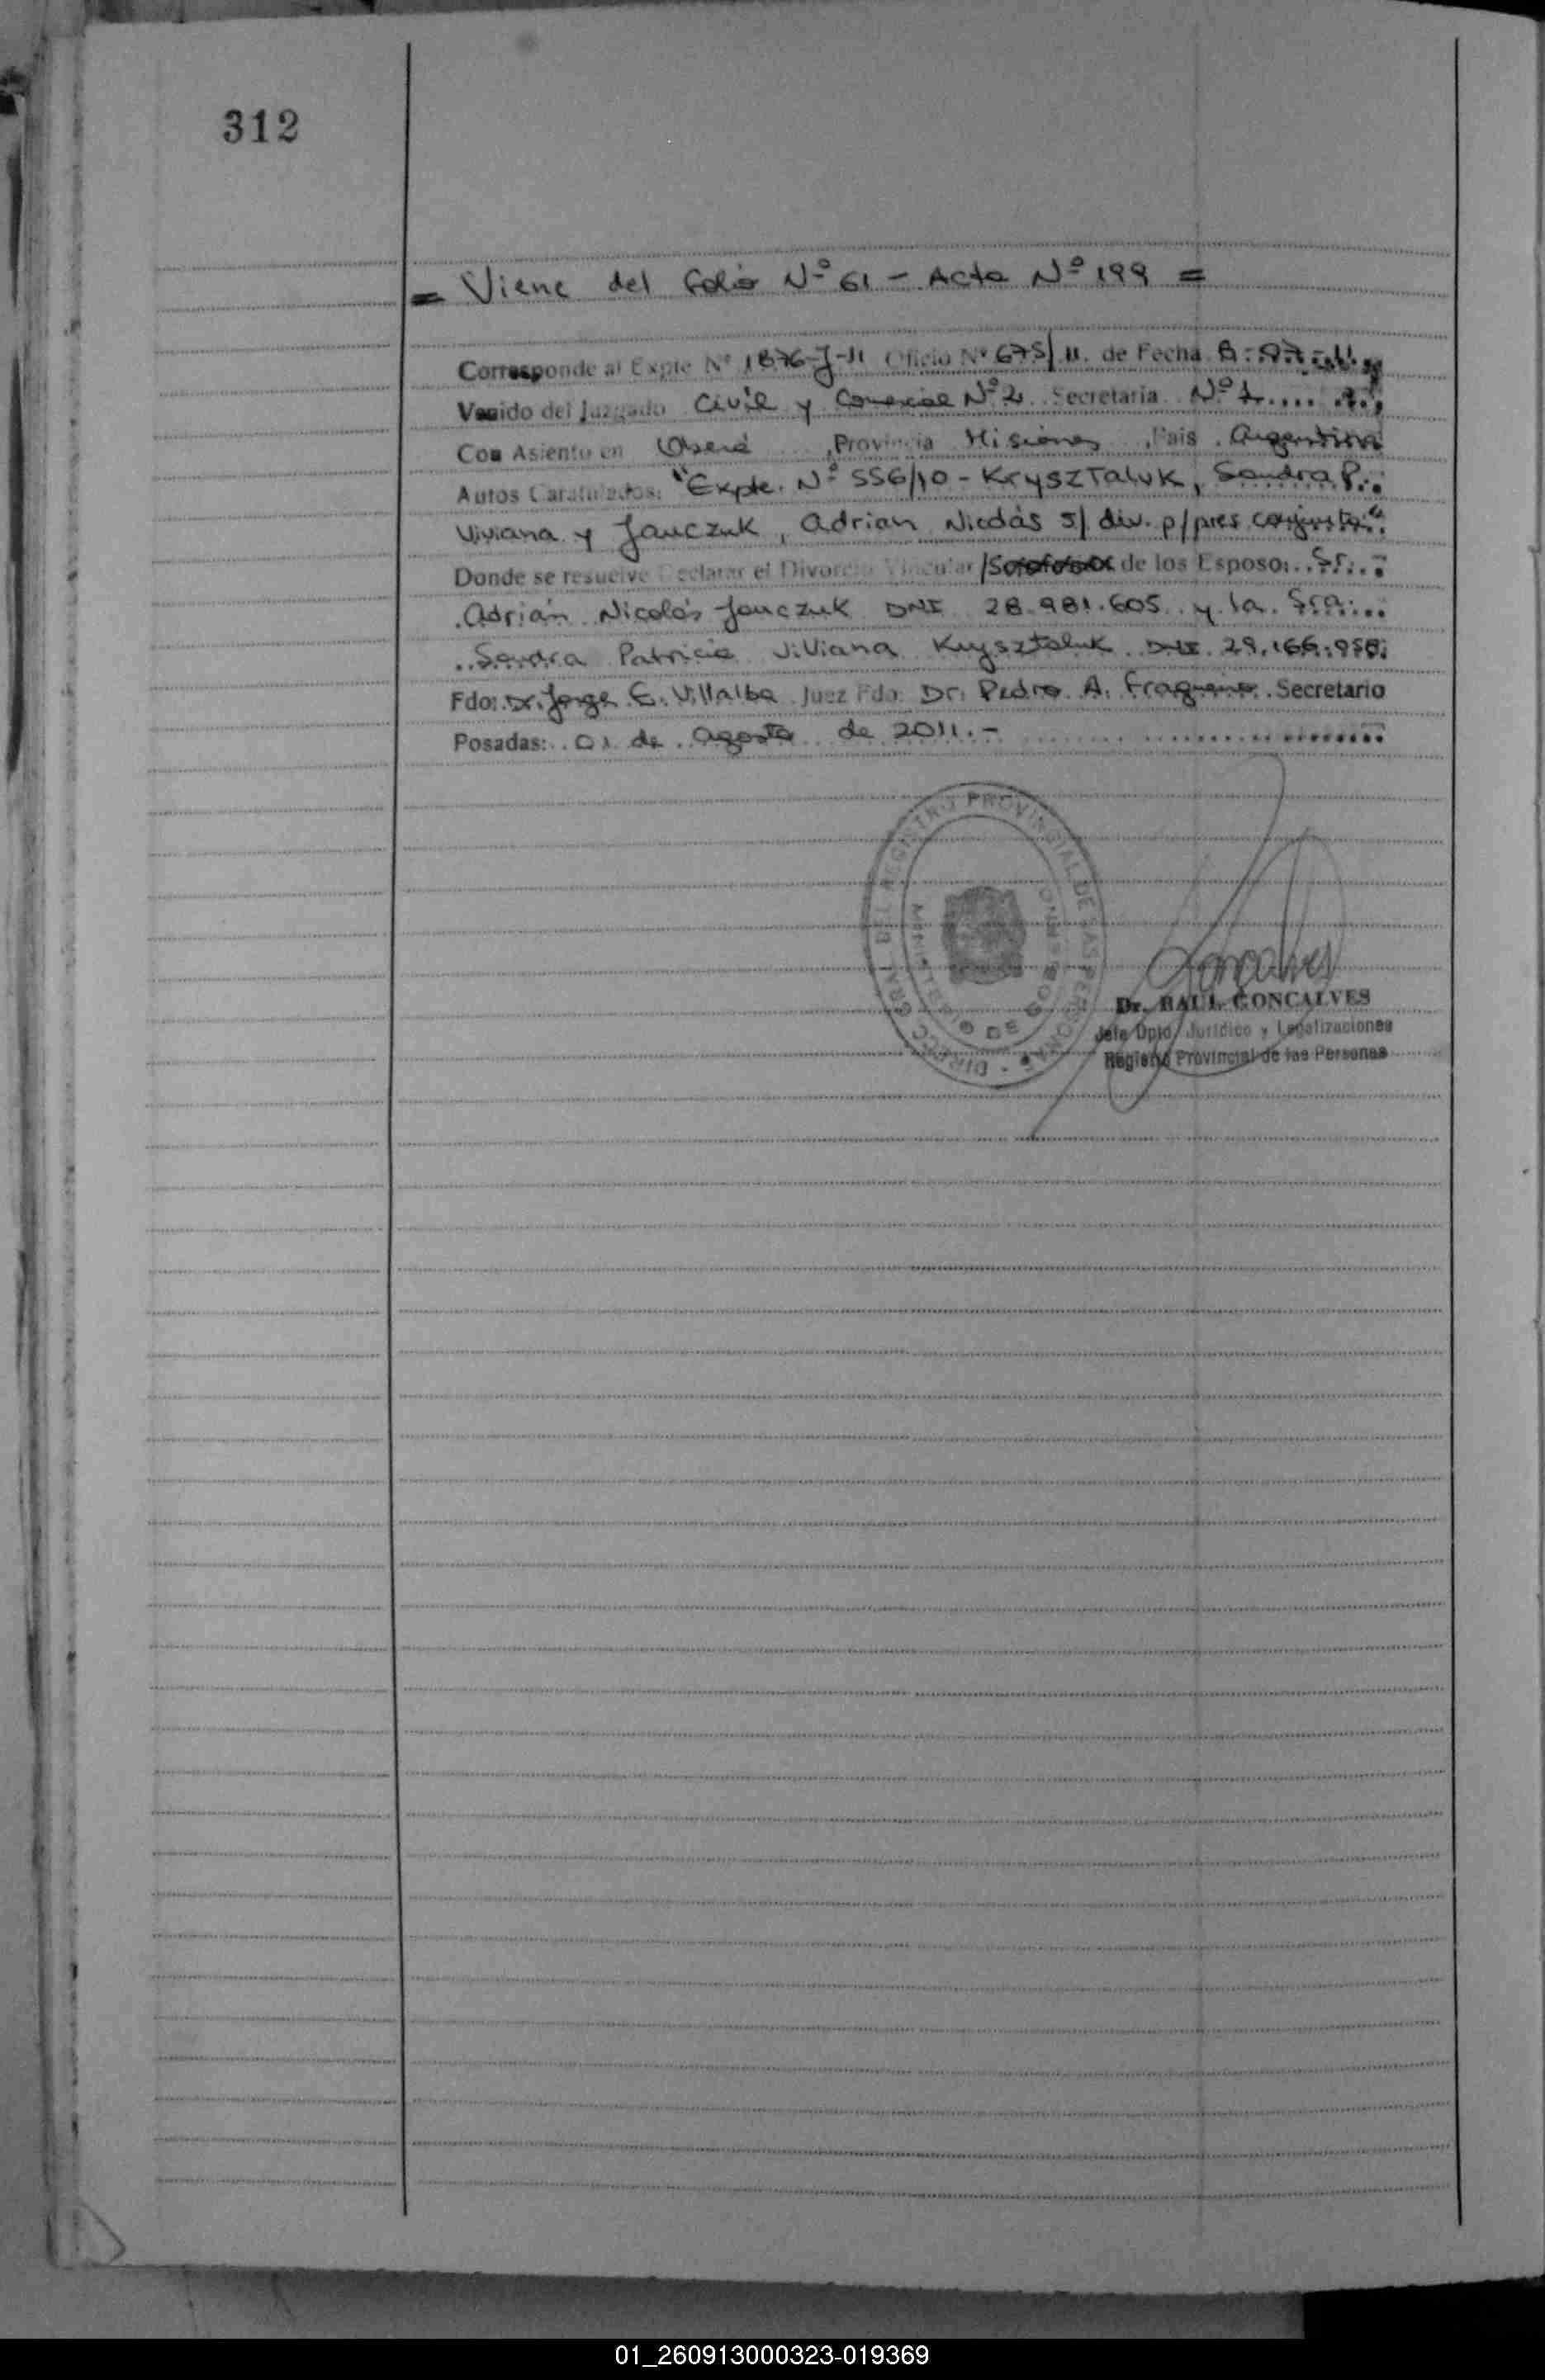 312
= Viene del folio Nº 61 - Acta Nº 199 =
Corresponde al Expte Nº 1876-J-11 Oficio Nº 675/11. de Fecha 8.07.11.
Venido del Juzgado Civil y Comercial Nº 2 Secretaria Nº 1....
Con Asiento en Oberá, Provincia Misiones, Pais Argentina
Autos Caratulados: "Expte. Nº 556/10 - Kryszталuk, Sandra P.
Viviana y Jauczuk, Adrian Nicolás s/ div. p/pres conjunta."
Donde se resuelve Declarar el Divorcio Vincular / de los Esposo: Sr.
Adrián Nicolás Jauczuk DNI 28.981.605 y la Sra.
Sandra Patricia Viviana Krysztaluk DNI 29.166.950.
Fdo: Dr. Jorge E. Villalba Juez Fdo: Dr. Pedro A. Secretario
Posadas: 01 de agosto de 2011.-
DIRECC. GRAL. DEL REGISTRO PROVINCIAL DE LAS PERSONAS
MINISTERIO DE GOB. MISIONES
Goncalves
Dr. RAUL GONCALVES
Jefe Dpto. Jurídico y Legalizaciones
Registro Provincial de las Personas
01_260913000323-019369